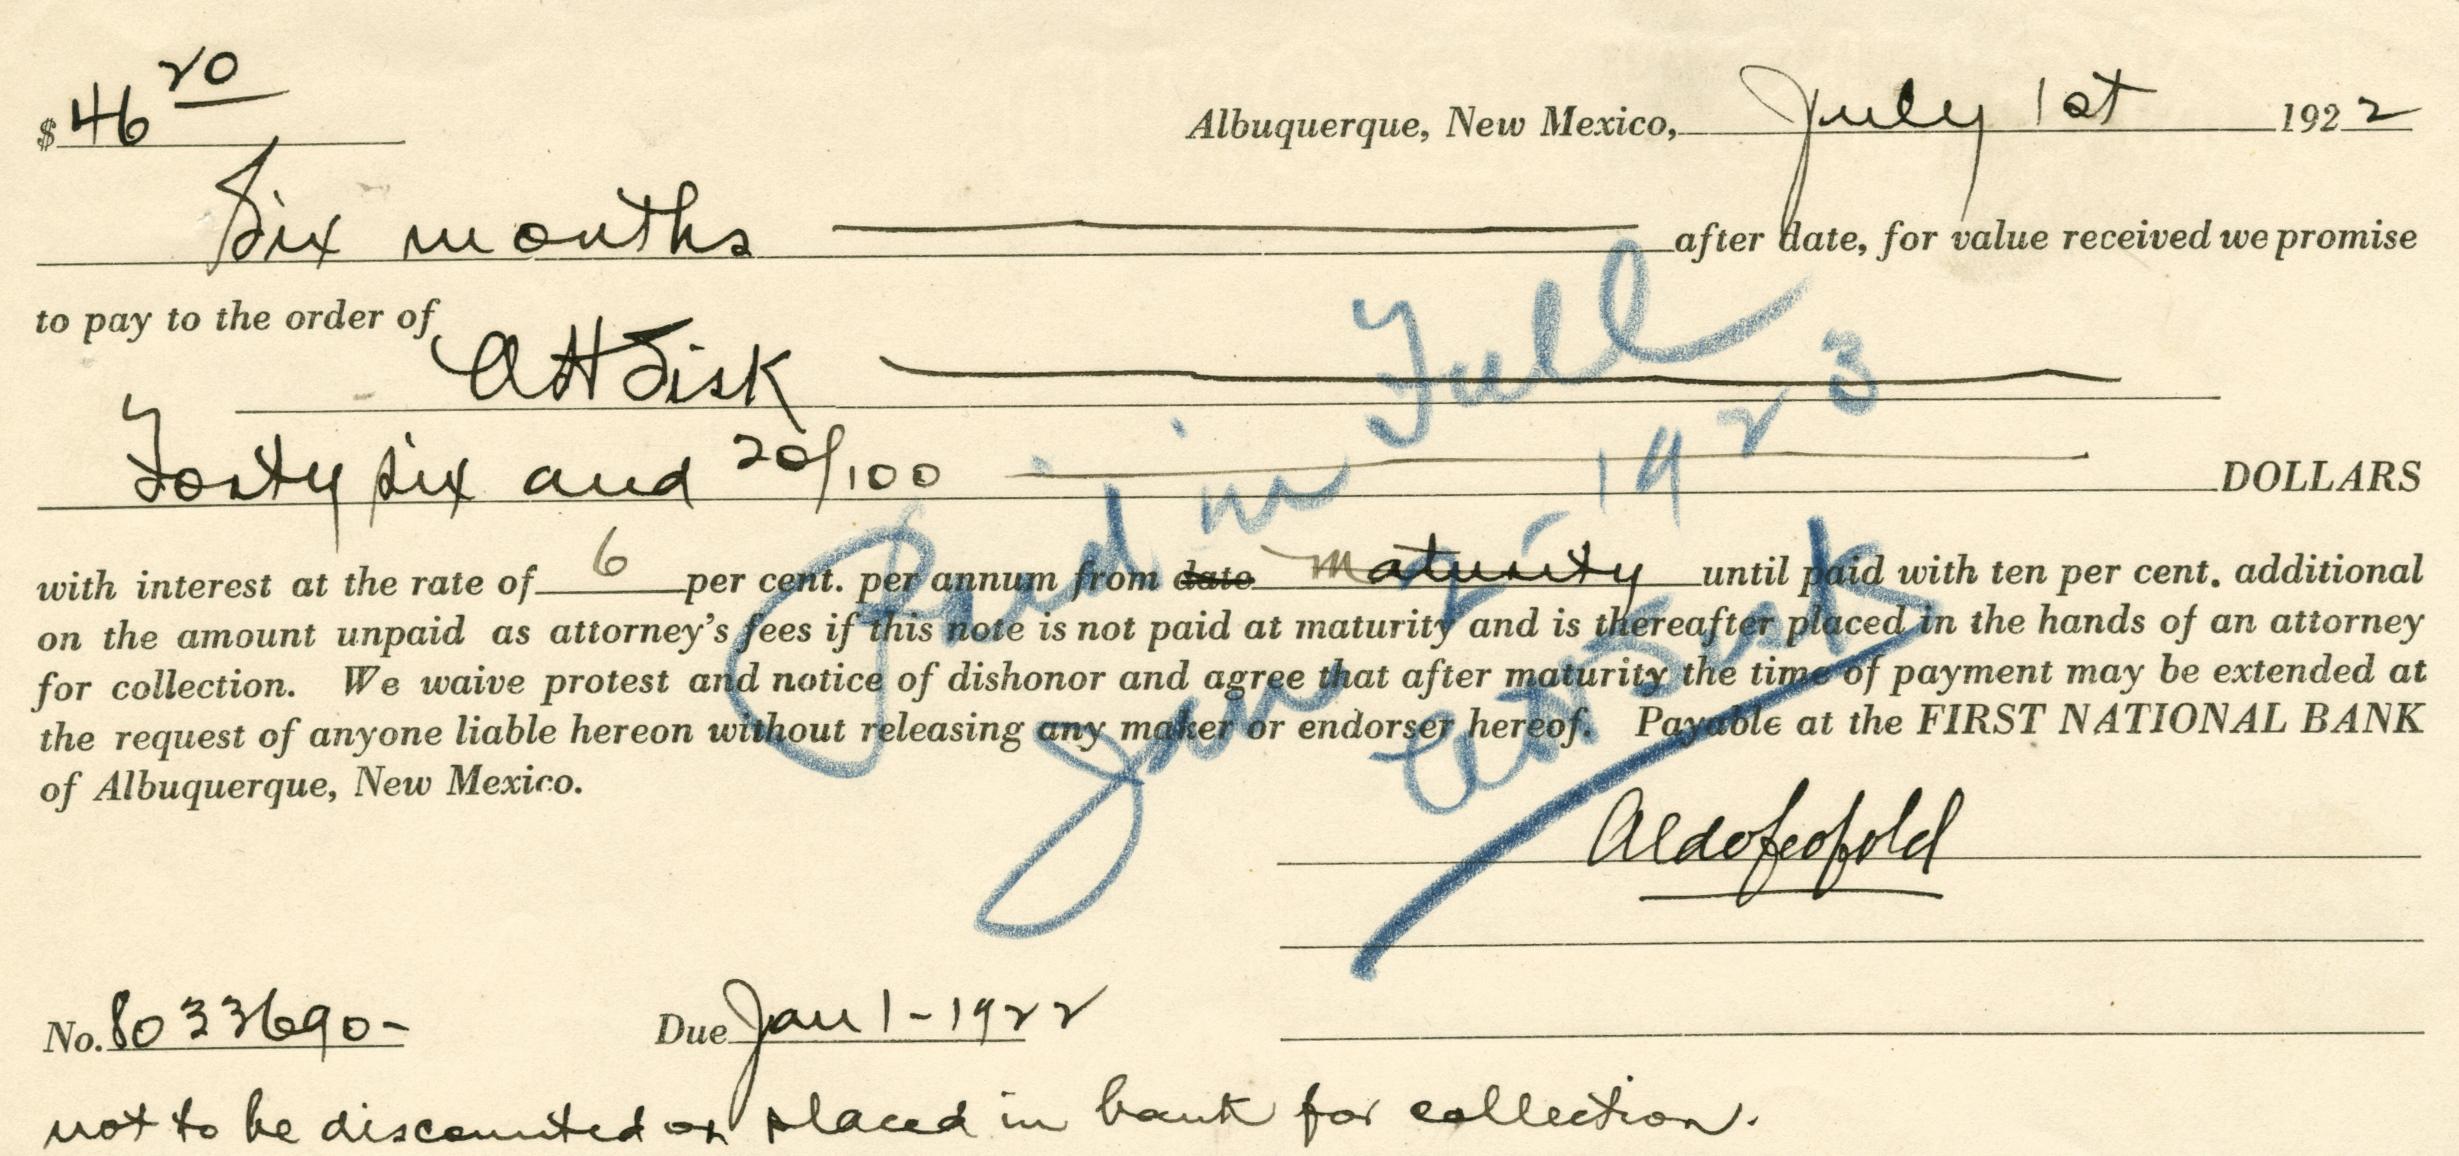 $ 46 20
Albuquerque, New Mexico, July 1st 1922
Six months after date, for value received we promise
to pay to the order of
A H Sisk
Forty six and 20/100 DOLLARS
with interest at the rate of 6 per cent. per annum from date maturity until paid with ten per cent. additional
on the amount unpaid as attorney's fees if this note is not paid at maturity and is thereafter placed in the hands of an attorney
for collection. We waive protest and notice of dishonor and agree that after maturity the time of payment may be extended at
the request of anyone liable hereon without releasing any maker or endorser hereof. Payable at the FIRST NATIONAL BANK
of Albuquerque, New Mexico.
Paid in Full
Jan 2 1923
A H Sisk
Aldo Leopold
No. 8033690- Due Jan 1-1922
not to be discounted or placed in bank for collection.